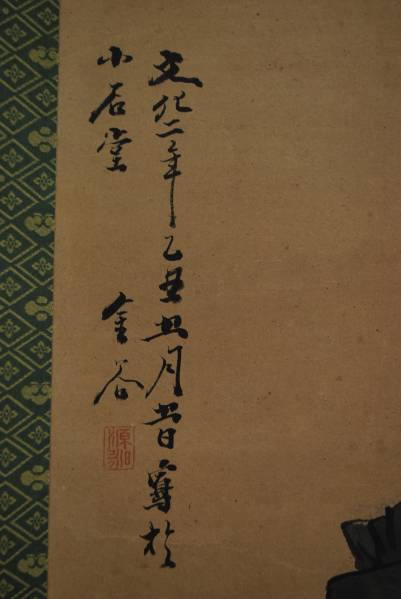 文化二年乙丑月日寫於
小石堂
金谷